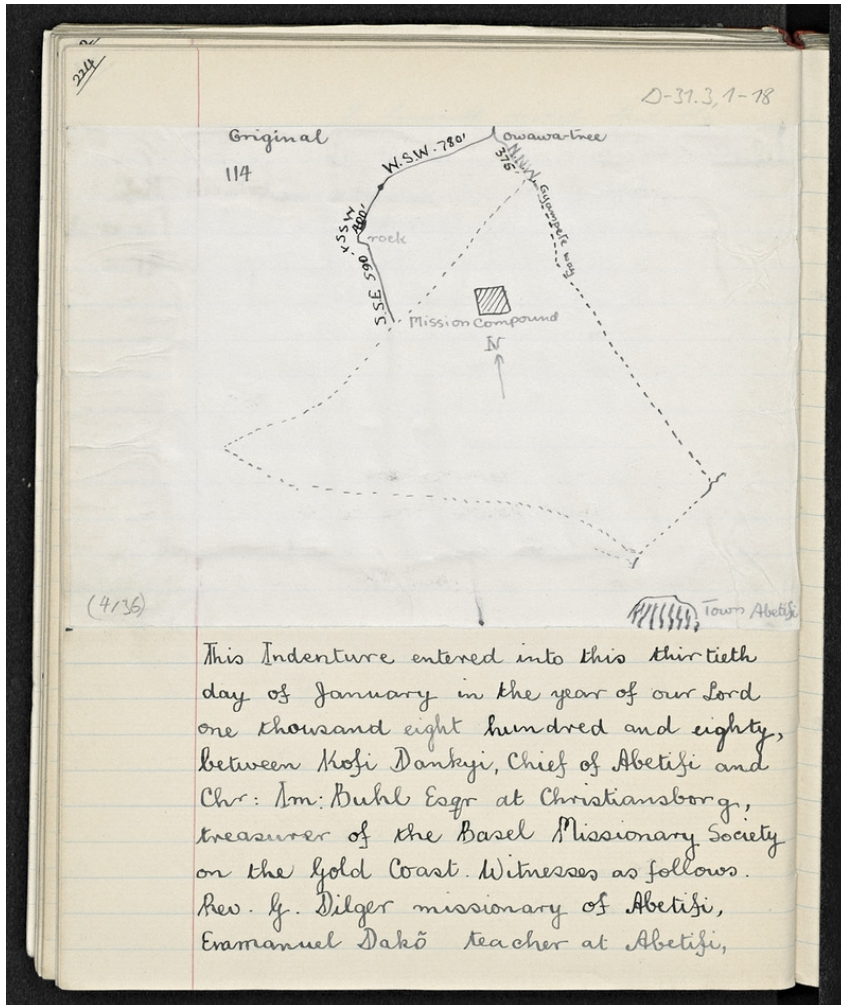 224
D-31.3,1-18
Original
114
Owawa-tree
W.S.W. 780'
N.N.W.
376'
Gyampete way
S S W
rock
S.S.E 590
Mission Compound
N
(4/36)
Town Abetifi
This Indenture entered into this thirtieth
day of January in the year of our Lord
one thousand eight hundred and eighty,
between Kofi Dankyi, Chief of Abetifi and
Chr: Im: Buhl Esqr at Christiansborg,
treasurer of the Basel Missionary Society
on the Gold Coast. Witnesses as follows.
Rev. G. Dilger missionary of Abetifi,
Eramanuel Dakō teacher at Abetifi,